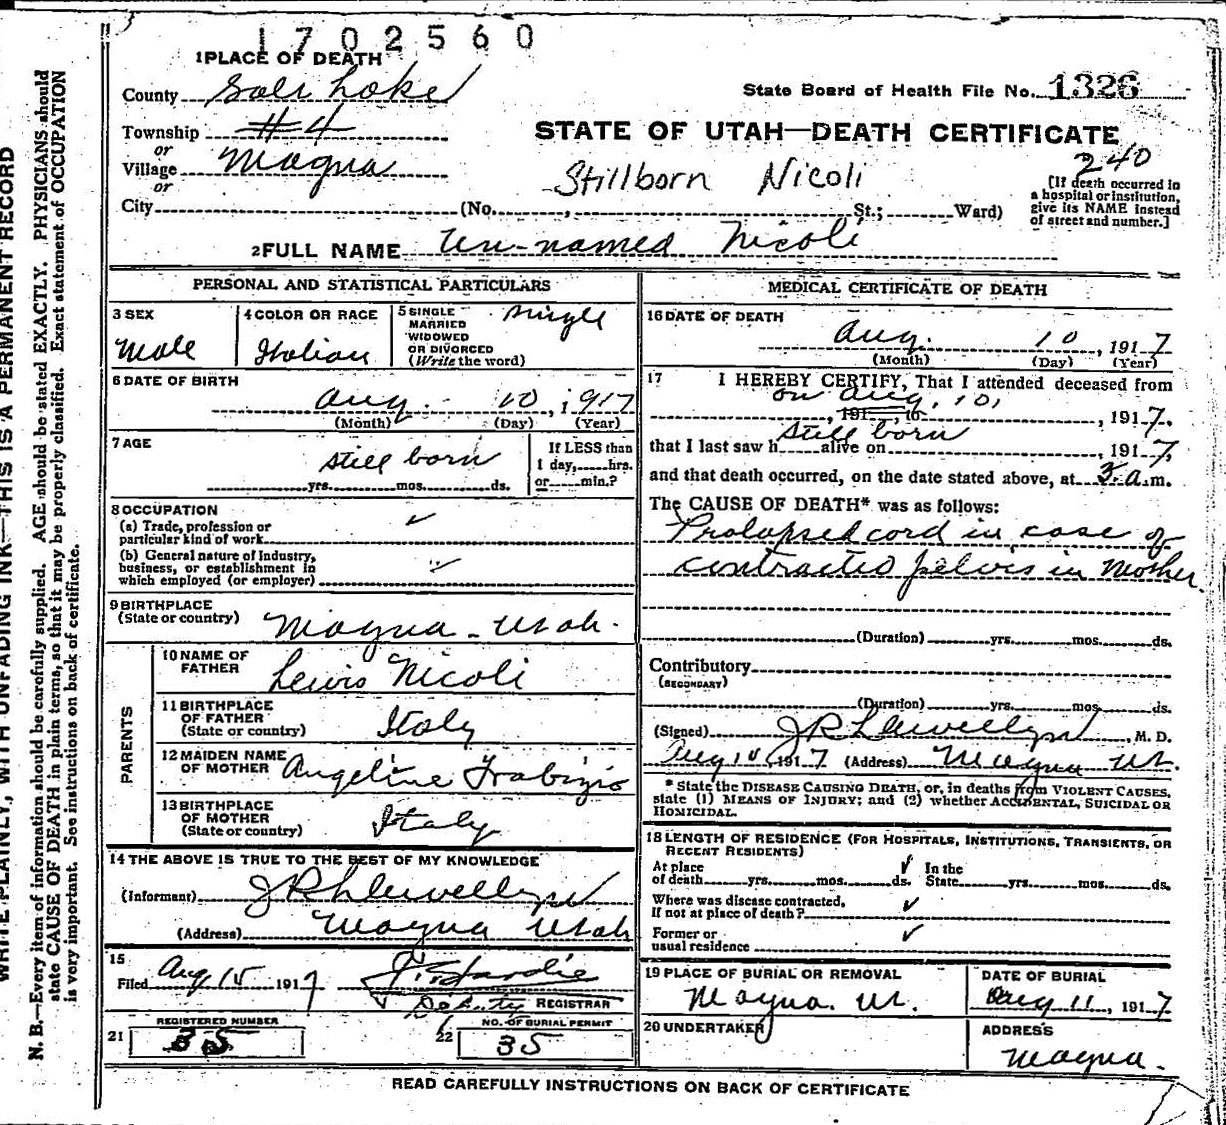 1702560
1 PLACE OF DEATH
County Salt Lake
State Board of Health File No. 1326
Township #4
or
Village Magna
or
STATE OF UTAH—DEATH CERTIFICATE
240
Stillborn Nicoli
[If death occurred in a hospital or institution, give its NAME instead of street and number.]
City (No. , St.; Ward)
2 FULL NAME Un-named Nicoli
PERSONAL AND STATISTICAL PARTICULARS
3 SEX
Male
4 COLOR OR RACE
Italian
5 SINGLE
MARRIED
WIDOWED
OR DIVORCED
(Write the word)
Single
6 DATE OF BIRTH
Aug. 10, 1917
(Month) (Day) (Year)
7 AGE
still born
yrs. mos. ds.
If LESS than
1 day, hrs.
or min.?
8 OCCUPATION
(a) Trade, profession or
particular kind of work
(b) General nature of Industry,
business, or establishment in
which employed (or employer)
9 BIRTHPLACE
(State or country) Magna - Utah.
PARENTS
10 NAME OF
FATHER Lewis Nicoli
11 BIRTHPLACE
OF FATHER
(State or country) Italy
12 MAIDEN NAME
OF MOTHER Angeline Frabizio
13 BIRTHPLACE
OF MOTHER
(State or country) Italy
14 THE ABOVE IS TRUE TO THE BEST OF MY KNOWLEDGE
(Informant) J R Llewellyn
(Address) Magna Utah
15
Filed Aug 15 1917
Deputy REGISTRAR
21 REGISTERED NUMBER
35
22 NO. OF BURIAL PERMIT
35
MEDICAL CERTIFICATE OF DEATH
16 DATE OF DEATH
Aug. 10, 1917
(Month) (Day) (Year)
17 I HEREBY CERTIFY, That I attended deceased from
on Aug. 10,
, 191 to , 1917.
still born
that I last saw h alive on , 1917,
and that death occurred, on the date stated above, at 3 a.m.
The CAUSE OF DEATH* was as follows:
Prolapsed cord in case of
contracted pelvis in Mother.
(Duration) yrs. mos. ds.
Contributory
(SECONDARY)
(Duration) yrs. mos. ds.
(Signed) J R Llewellyn, M. D.
Aug 10 1917 (Address) Magna Ut.
* State the DISEASE CAUSING DEATH, or, in deaths from VIOLENT CAUSES,
state (1) MEANS OF INJURY; and (2) whether ACCIDENTAL, SUICIDAL OR
HOMICIDAL.
18 LENGTH OF RESIDENCE (FOR HOSPITALS, INSTITUTIONS, TRANSIENTS, OR
RECENT RESIDENTS)
At place In the
of death yrs. mos. ds. State yrs. mos. ds.
Where was disease contracted,
If not at place of death?
Former or
usual residence
19 PLACE OF BURIAL OR REMOVAL
Magna. Ut.
DATE OF BURIAL
Aug 11, 1917
20 UNDERTAKER
ADDRESS
Magna.
READ CAREFULLY INSTRUCTIONS ON BACK OF CERTIFICATE
WRITE PLAINLY, WITH UNFADING INK—THIS IS A PERMANENT RECORD
N. B.—Every item of information should be carefully supplied. AGE should be stated EXACTLY. PHYSICIANS should
state CAUSE OF DEATH in plain terms, so that it may be properly classified. Exact statement of OCCUPATION
is very important. See instructions on back of certificate.